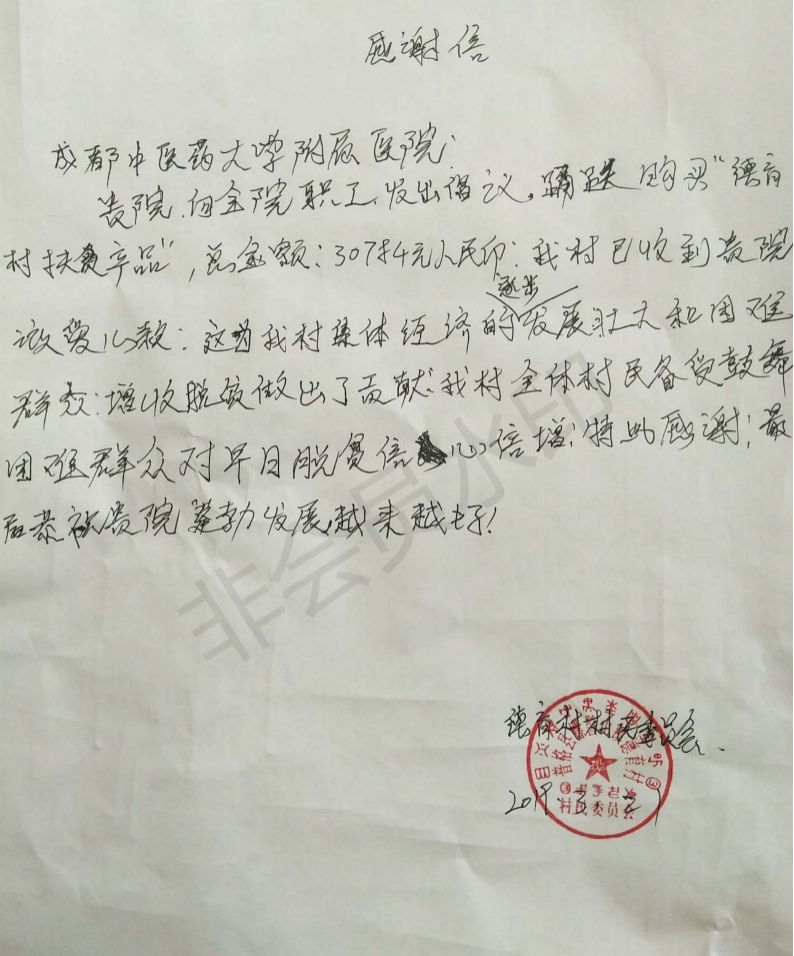 感谢信
成都中医药大学附属医院:
贵院向全院职工发出倡议,踊跃购买"德育
村扶贫产品",总金额:30784元人民币:我村已收到贵院
逐步
爱心款:这为我村集体经济的发展壮大和困难
群众:增收脱贫做出了贡献:我村全体村民备受鼓舞
困难群众对早日脱贫信心倍增!特此感谢!最
后恭祝贵院蓬勃发展,越来越好!
德育村村民委员会.
村民委员会
非会员水印